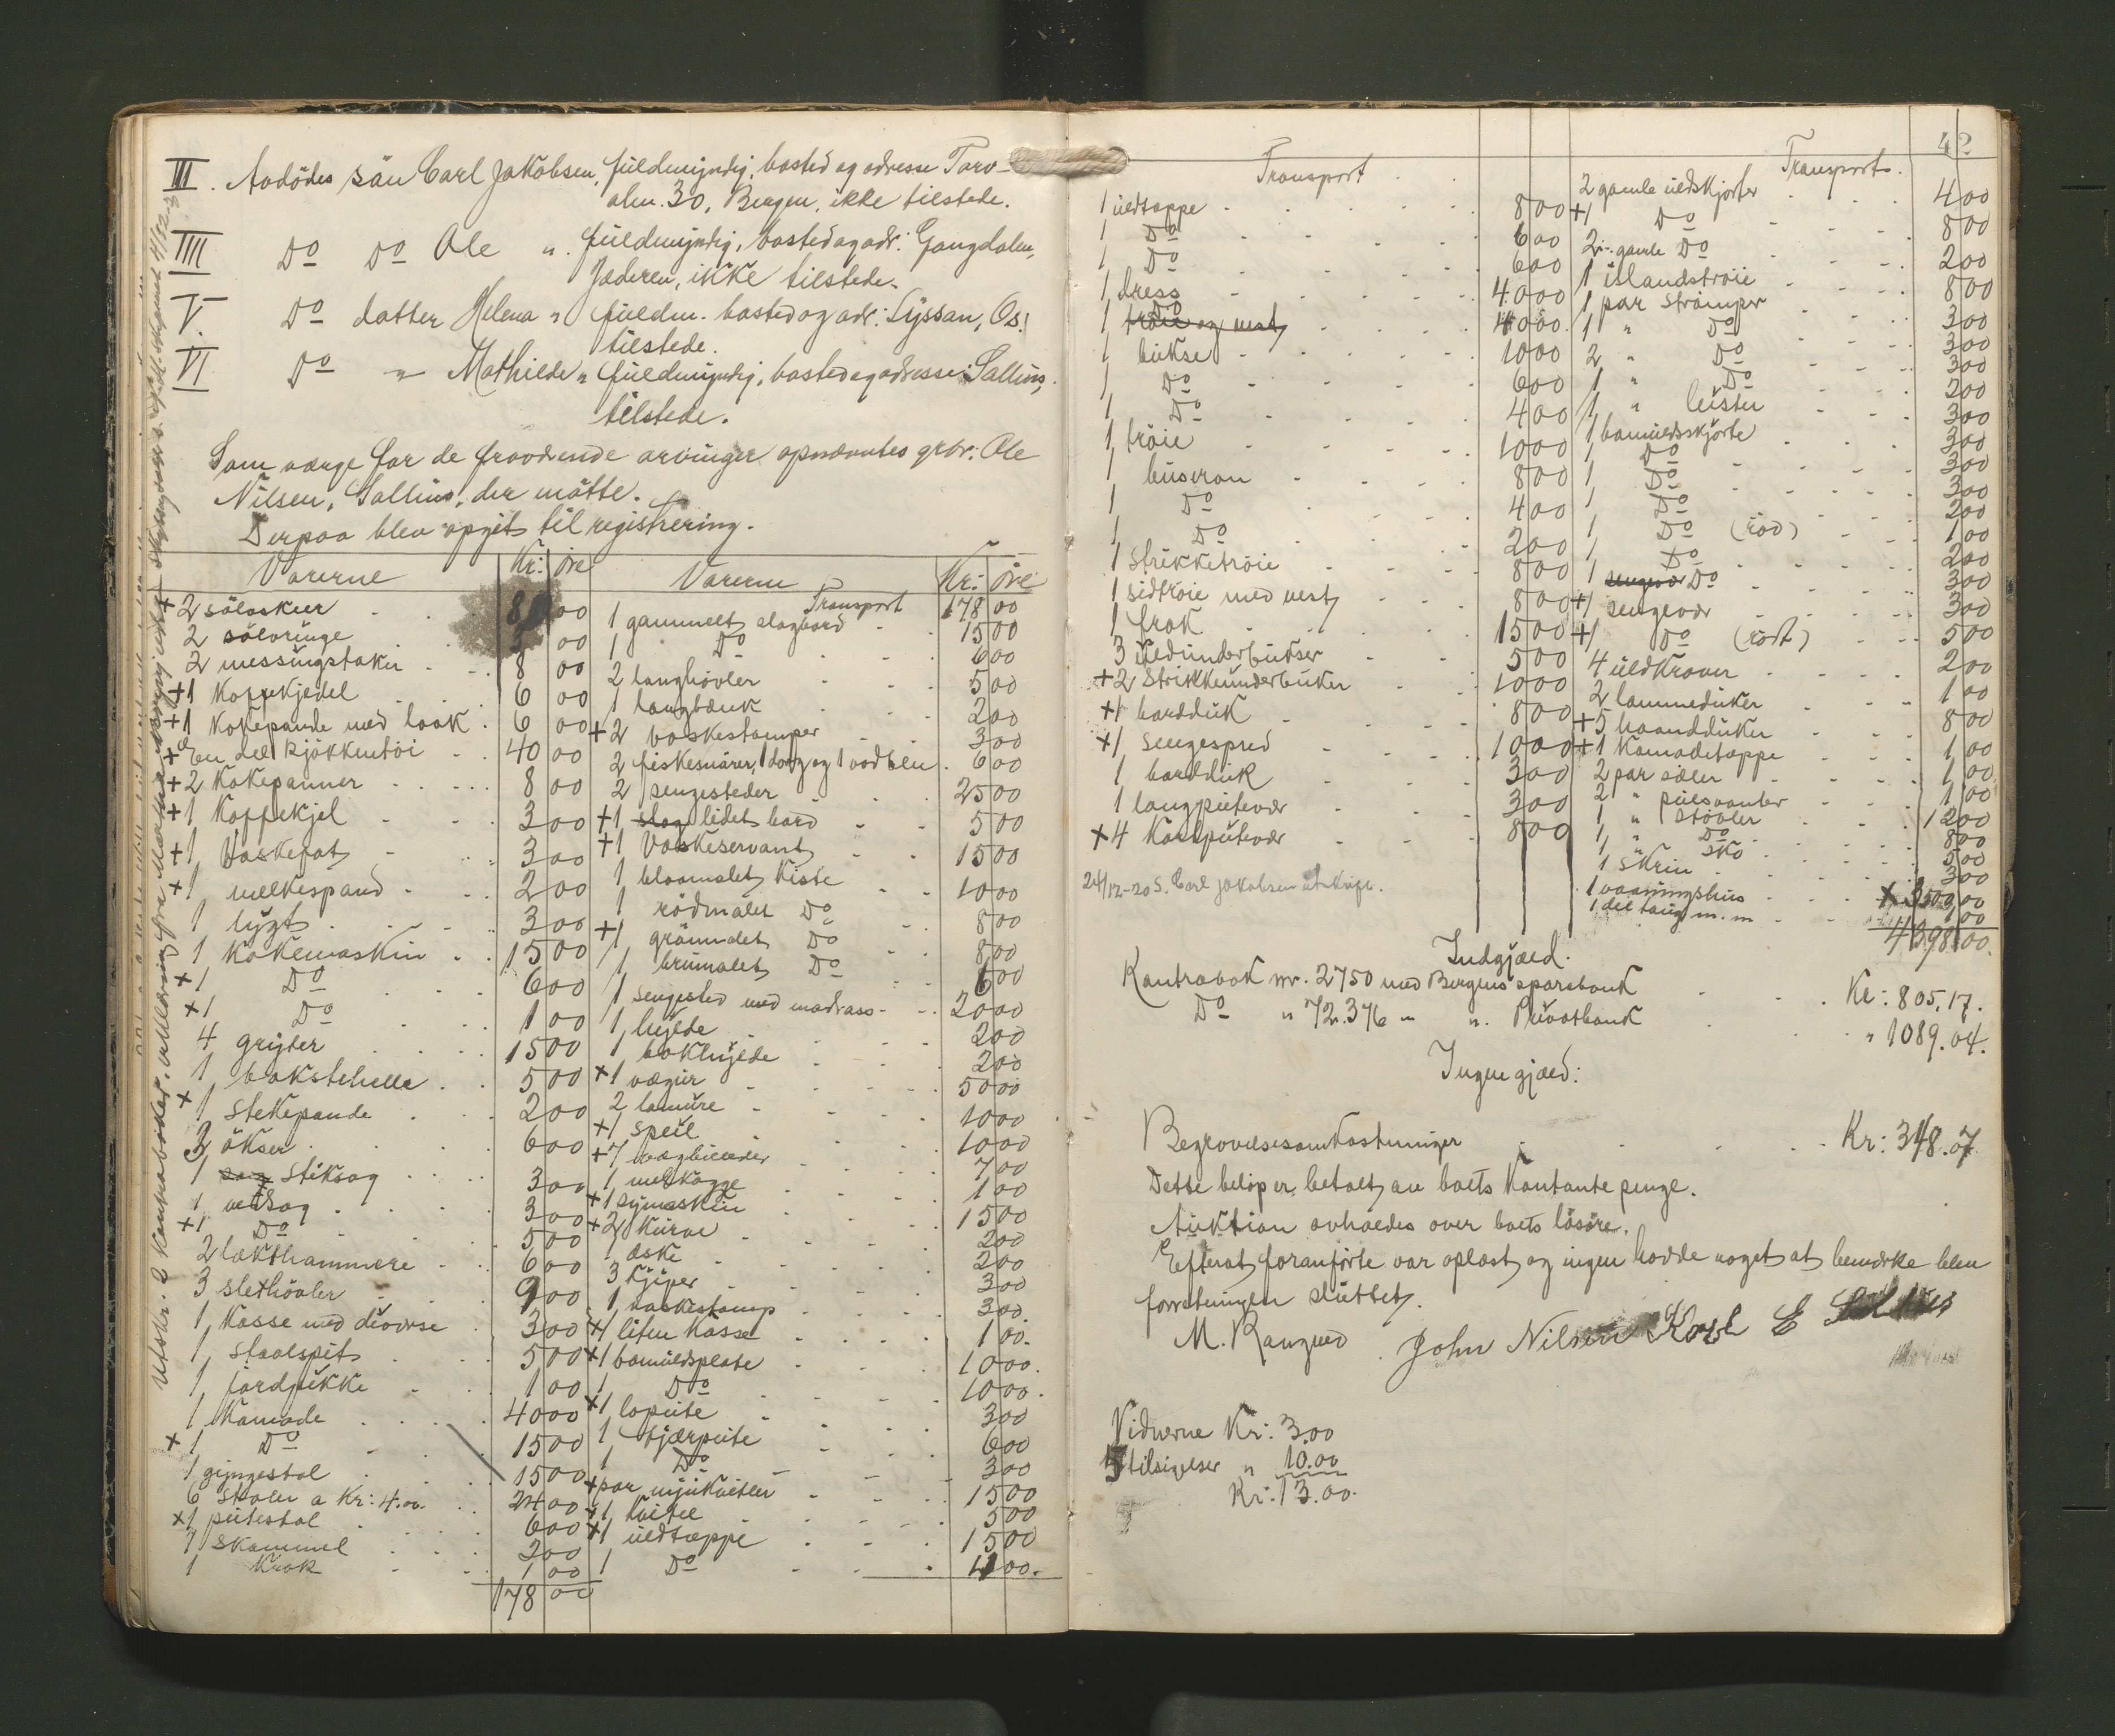 III. Avdödes sön Carl Jakobsen, fuldmyndig, bosted og adresse Torv-
alm. 30, Bergen, ikke tilstede.
IIII Do Do Ole " fuldmyndig, bosted og adr:
Jæderen, ikke tilstede.
V. Do datter Helena " fuldm. bosted og adr: Lyssan, Os,
tilstede.
VI Do " Mathilde " fuldmyndig, bosted og adresse:
tilstede.
Som værge for de fraværende arvinger opnævntes grbr: Ole
Nilsen, der mötte.
Derpaa blev opgit til registrering.
Varerne Kr: Öre
+ 2 sölvskeer 8 00
2 sölvringe 3 00
2 messingstaker 8 00
+1 Kaffekjedel 6 00
+1 Kokepande med laak 6 00
+ En del kjökkentöi 40 00
+2 Kakepanner 8 00
+1 Kaffekjel 3 00
+1 Vaskefat 3 00
+1 melkespand 2 00
1 lygt 3 00
1 Kokemaskin 15 00
+1 Do 6 00
+1 Do 1 00
4 gryter 15 00
1 bakstehelle 5 00
+1 Stekepande 2 00
3 ökser 6 00
1 Stiksag 3 00
1 vedsag 3 00
+1 Do 5 00
2 lækthammere 6 00
3 slethövler 9 00
1 Kasse med diverse 3 00
1 Staalspit 5 00
1 jordhakke 1 00
1 Kamode 40 00
+1 Do 15 00
1 gyngestol 15 00
6 Stoler a Kr: 4.00. 24 00
+1 putestol 6 00
7 Skammel 2 00
1 Krak 1 00
178 00
Varerne Kr: Öre
Transport 178 00
1 gammelt slagbord 15 00
1 Do 6 00
2 langhövler 5 00
1 langbænk 2 00
+2 vaskestamper 3 00
2 fiskesnörer, 1 dorg og 1 6 00
2 sengesteder 25 00
+1 slag lidet bord 5 00
+1 Vaskeservant 15 00
1 bloamalet Kiste 10 00
1 rödmalet Do 8 00
+1 grönmalet Do 8 00
1 brunmalet Do 6 00
1 sengested med madrass 20 00
1 hylde 2 00
1 bokhylde 2 00
+1 vægur 50 00
2 10 00
+1 speil 10 00
+7 vægbilleder 7 00
1 1 00
+1 symaskin 15 00
+2 Kurve 2 00
1 æske 2 00
3 Kjiper 3 00
1 vaskestamp 3 00
+1 liten Kasse 1 00
+1 bomuldsplate 10 00.
1 Do 10 00.
+1 loputе 3 00
1 fjærpute 6 00
1 Do 3 00
+par 15 00
+1 Kvitel 5 00
+1 uldtæppe 15 00
1 Do 4 00.
42
Transport
1 uldtæppe 8 00
1 Do 6 00
1 Do 6 00
1 dress 40 00
1 Do tröie og vest 40 00.
1 bukse 10 00
1 Do 6 00
1 Do 4 00
1 tröie 10 00
1 buseron 8 00
1 Do 4 00
1 Do 2 00
1 Strikketröie 8 00
1 sidtröie med vest 8 00
1 frak 15 00
3 uldunderbukser 5 00
+2 Strikkeunderbuker 10 00
+1 bordduk 8 00
+1 sengespred 10 00
1 bordduk 3 00
1 langputevær 3 00
+4 Korsputevær 8 00
24/12-20 S. Carl Jakobsen utskrift.
Transport.
2 gamle uldskjorter 4 00
+1 Do 8 00
2 gamle Do 2 00
1 islandströie 8 00
1 par Strömper 3 00
1 " Do 3 00
2 " Do 3 00
1 " Do 2 00
1 " leister 3 00
1 bomuldsskjorte 3 00
1 Do 3 00
1 Do 3 00
1 Do 2 00
1 Do (röd) 1 00
1 Do 2 00
1 sengevær Do 3 00
+1 sengevær 3 00
+1 Do (rödt) 5 00
4 uldkraver 2 00
2 lommeduker 1 00
+5 haandduker 8 00
+1 Kamodetæppe 1 00
2 par sæler 1 00
2 " pulsvanter 1 00
1 " Stövler 12 00
1 " Do 8 00
1 " sko 5 00
1 Skrin 3 00
1 vaaningshus × 3500 00
1 del taug m. m. 1 00
4398 00.
Indgjæld.
Kontrabok nr. 2750 med Bergens sparebank Kr: 805,17.
Do " 72.376 " " Privatbank " 1089.04.
Ingen gjæld:
Begravelsesomkostninger Kr: 348.07
Dette belöp er betalt av boets Kontante penge.
Auktion avholdes over boets lösöre.
Efterat foranförte var oplæst og ingen hadde noget at bemerke blev
forretningen sluttet.
John Nilsen
Vidnerne Kr: 3.00
5 tilsigelser " 10.00
Kr: 13.00.